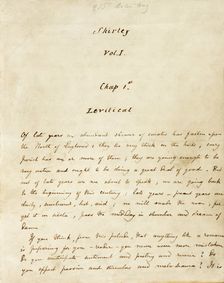 Shirley
Vol. I.
Chap 1st
Levitical
Of late years an abundant shower of curates has fallen upon
the North of England: they lie very thick on the hills; every
parish has one or more of them; they are young enough to be
very active and ought to be doing a great deal of good. But
not of late years are we about to speak; we are going back
to the beginning of this century; late years — present years are
dusty, sunburnt, hot, arid; we will evade the noon, for-
get it in siesta, pass the midday in slumber and dream of
dawn.
If you think, from this prelude, that anything like a romance
is preparing for you — reader — you never were more mistaken.
Do you anticipate sentiment and poetry and reverie? Do
you expect passion and stimulus and melodrama?